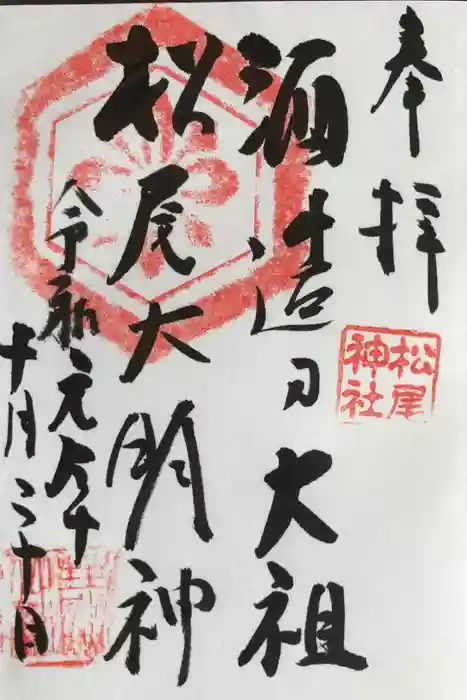 奉拝
松尾
神社
酒造日大祖
松尾大明神
令和元年
十月二十日